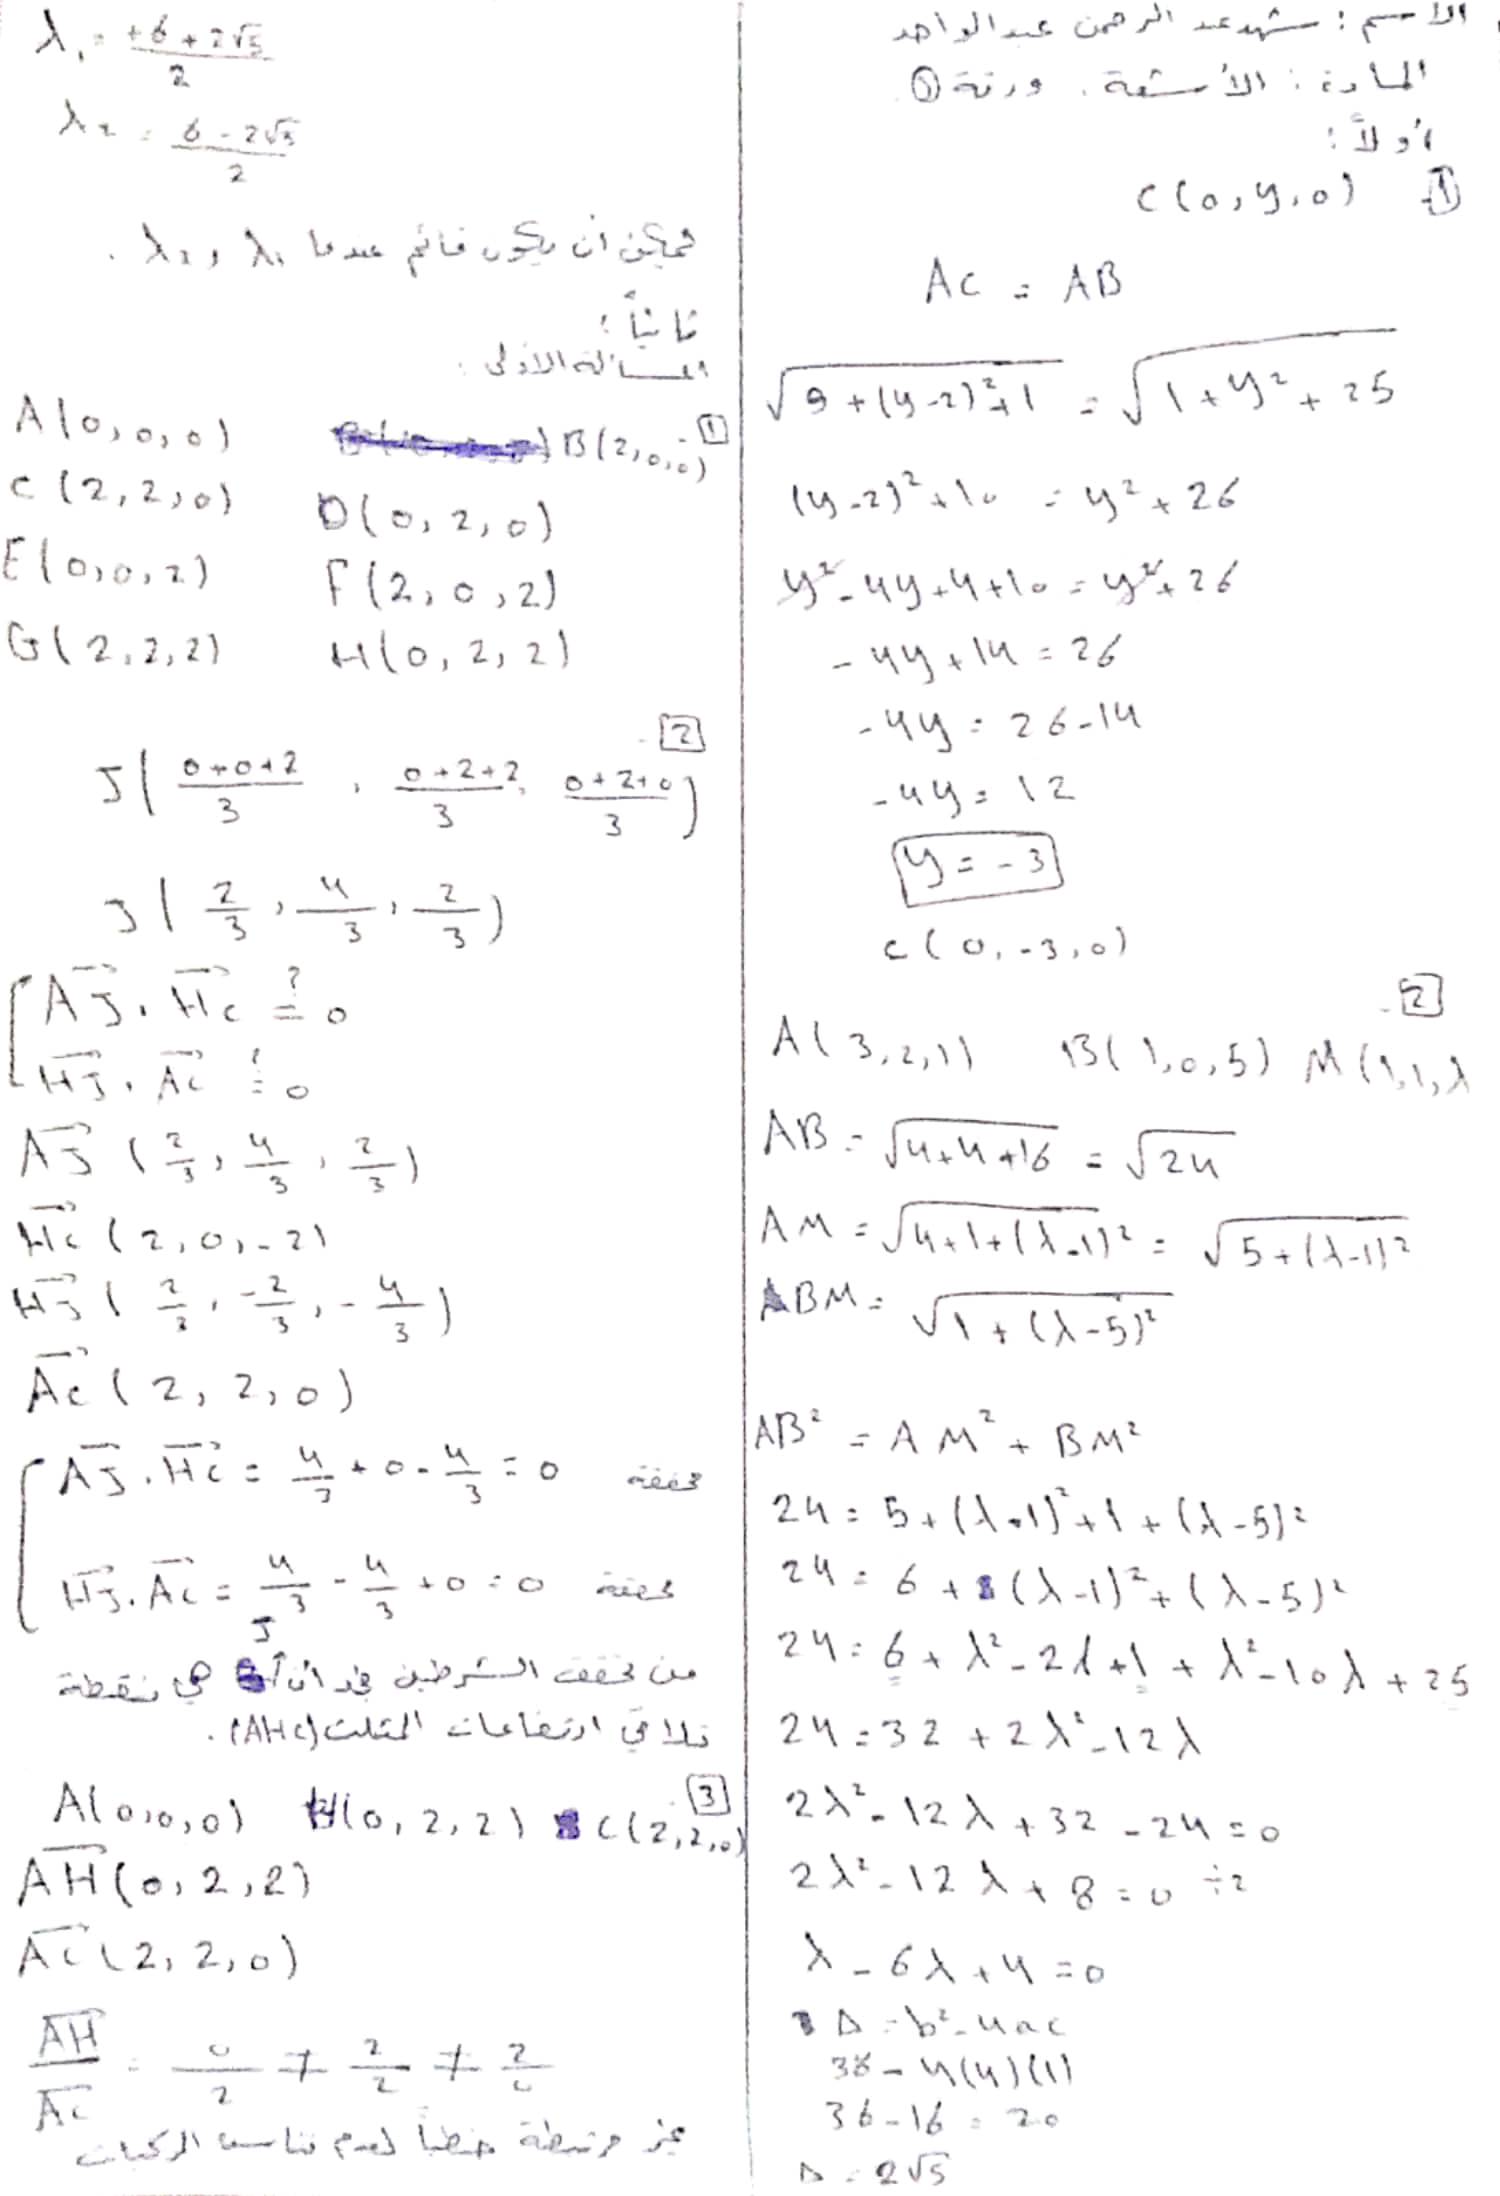 الاسم: شهد عبد الرحمن عبد الواحد
المادة: الأشعة. ورقة ①
أولاً:
1 C(0,y,0)
AC = AB
√9+(y-2)²+1 = √1+y²+25
(y-2)²+10 = y²+26
y²-4y+4+10 = y²+26
-4y+14 = 26
-4y = 26-14
-4y = 12
y = -3
C(0,-3,0)
2
A(3,2,1) B(1,0,5) M(1,1,λ
AB = √4+4+16 = √24
AM = √4+1+(λ-1)² = √5+(λ-1)²
BM = √1+(λ-5)²
AB² = AM² + BM²
24 = 5+(λ-1)²+1+(λ-5)²
24 = 6+(λ-1)²+(λ-5)²
24 = 6+λ²-2λ+1+λ²-10λ+25
24 = 32+2λ²-12λ
2λ²-12λ+32-24=0
2λ²-12λ+8=0 ÷2
λ-6λ+4=0
Δ = b²-4ac
36-4(4)(1)
36-16 = 20
Δ = 2√5
λ₁ = +6+2√5/2
λ₂ = 6-2√5/2
فيمكن أن يكون قائم عندما λ₁ و λ₂.
ثانياً:
المسألة الأولى:
1
A(0,0,0) B(2,0,0)
C(2,2,0) D(0,2,0)
E(0,0,2) F(2,0,2)
G(2,2,2) H(0,2,2)
2
J(0+0+2/3, 0+2+2/3, 0+2+0/3)
J(2/3, 4/3, 2/3)
AJ⃗ . HC⃗ ?= 0
HJ⃗ . AC⃗ ?= 0
AJ⃗(2/3, 4/3, 2/3)
HC⃗(2,0,-2)
HJ⃗(2/3, -2/3, -4/3)
AC⃗(2,2,0)
AJ⃗ . HC⃗ = 4/3+0-4/3 = 0 محققة
HJ⃗ . AC⃗ = 4/3-4/3+0 = 0 محققة
من تحقق الشرطين نجد أن J هي نقطة
تلاقي ارتفاعات المثلث (AHC).
3
A(0,0,0) H(0,2,2) C(2,2,0)
AH⃗(0,2,2)
AC⃗(2,2,0)
AH⃗/AC⃗ = 0/2 ≠ 2/2 ≠ 2/0
غير مرتبطة خطياً لعدم تناسب المركبات